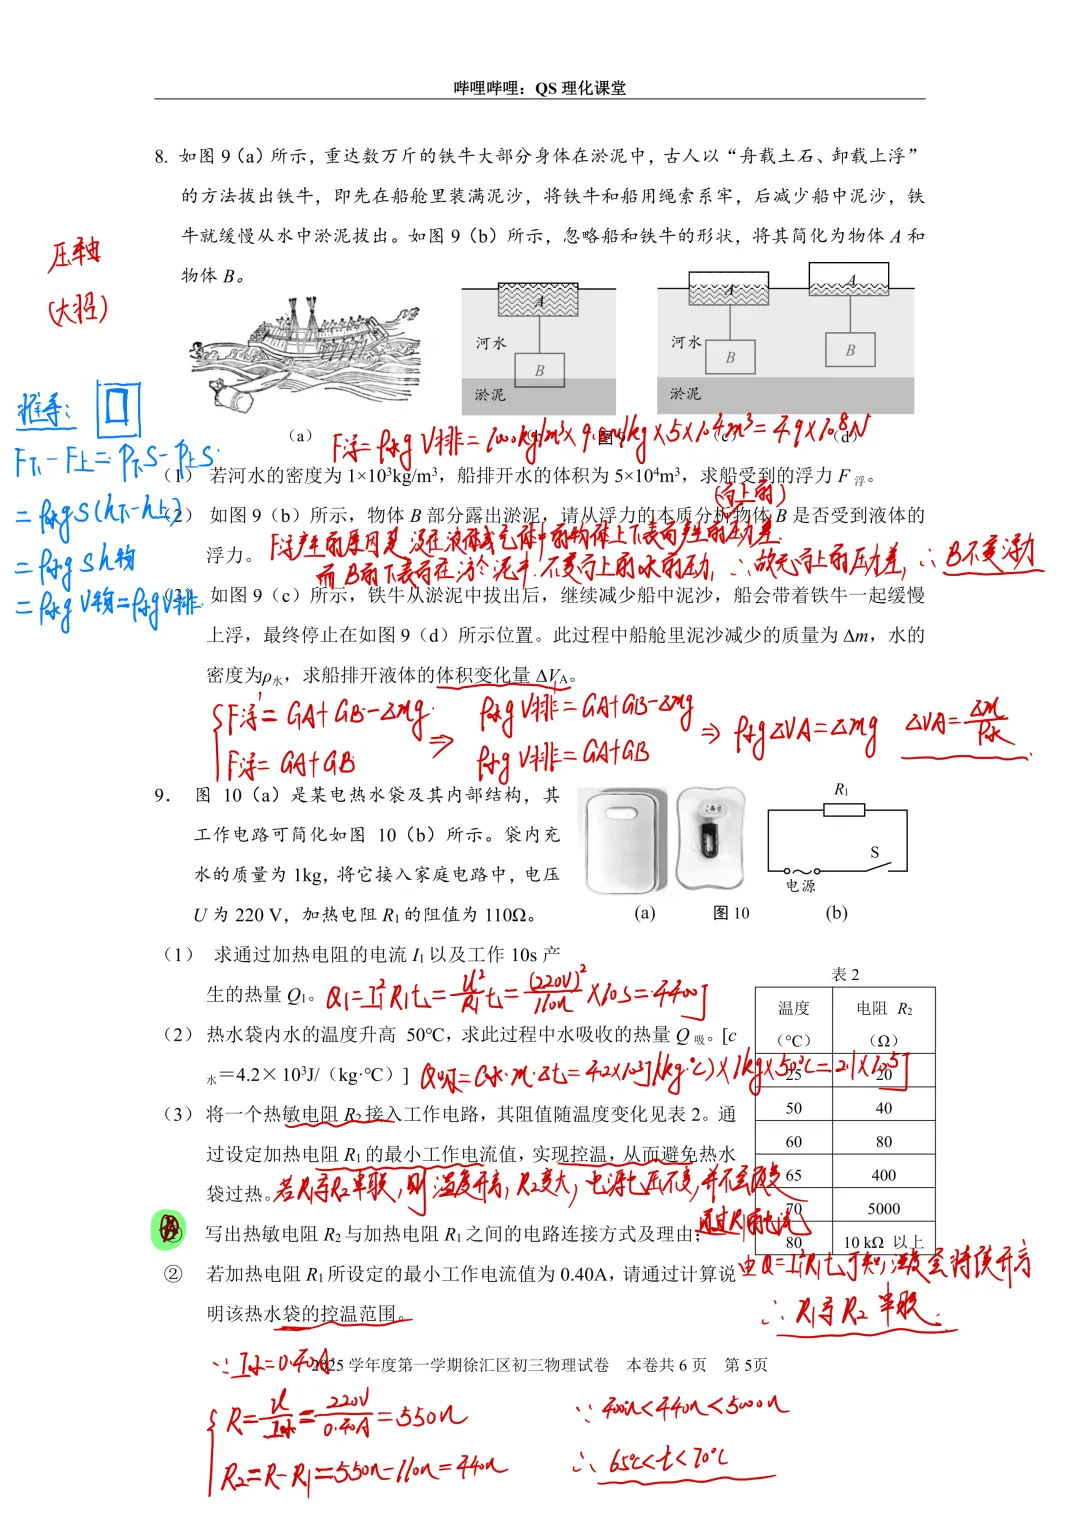 哔哩哔哩：QS 理化课堂
8. 如图 9（a）所示，重达数万斤的铁牛大部分身体在淤泥中，古人以“舟载土石、卸载上浮”
的方法拔出铁牛，即先在船舱里装满泥沙，将铁牛和船用绳索系牢，后减少船中泥沙，铁
牛就缓慢从水中淤泥拔出。如图 9（b）所示，忽略船和铁牛的形状，将其简化为物体 A 和
物体 B。
压轴
(大招)
A
河水
B
淤泥
A
A
河水
B
B
淤泥
推导：
F下－F上＝P下S－P上S
＝ρ水gS(h下－h上)
＝ρ水gSh物
＝ρ水gV物＝ρ水gV排
（a）
图 9
（c）
（d）
F浮＝ρ水gV排＝1000kg/m³×9.8N/kg×5×10⁴m³＝4.9×10⁸N
（1） 若河水的密度为 1×10³kg/m³，船排开水的体积为 5×10⁴m³，求船受到的浮力 F 浮。
(向上的)
（2） 如图 9（b）所示，物体 B 部分露出淤泥，请从浮力的本质分析物体 B 是否受到液体的
浮力。
F浮产生的原因是 浸在液体或气体中的物体上下表面产生的压力差
而B的下表面在淤泥中，不受向上的水的压力，∴故无向上的压力差，∴B不受浮力
（3） 如图 9（c）所示，铁牛从淤泥中拔出后，继续减少船中泥沙，船会带着铁牛一起缓慢
上浮，最终停止在如图 9（d）所示位置。此过程中船舱里泥沙减少的质量为 Δm，水的
密度为ρ水，求船排开液体的体积变化量 ΔVA。
F浮'＝GA+GB－Δmg
F浮＝GA+GB
⇒
ρ水gV排'＝GA+GB－Δmg
ρ水gV排＝GA+GB
⇒ ρ水gΔVA＝Δmg
ΔVA＝Δm/ρ水
9. 图 10（a）是某电热水袋及其内部结构，其
工作电路可简化如图 10（b）所示。袋内充
水的质量为 1kg，将它接入家庭电路中，电压
U 为 220 V，加热电阻 R1 的阻值为 110Ω。
R1
S
电源
(a)
图 10
(b)
（1） 求通过加热电阻的电流 I1 以及工作 10s 产
生的热量 Q1。
Q1＝I1²R1t＝U²/R1 t＝(220V)²/110Ω×10s＝4400J
（2） 热水袋内水的温度升高 50℃，求此过程中水吸收的热量 Q 吸。[c
水＝4.2×10³J/（kg·℃）]
Q吸＝C水·m·Δt＝4.2×10³J/(kg·℃)×1kg×50℃＝2.1×10⁵J
（3） 将一个热敏电阻 R2 接入工作电路，其阻值随温度变化见表 2。通
过设定加热电阻 R1 的最小工作电流值，实现控温，从而避免热水
袋过热。
表 2
温度（℃） 电阻 R2（Ω）
25 20
50 40
60 80
65 400
70 5000
80 10 kΩ 以上
若R1与R2串联，则温度升高，R2变大，电源电压不变，并不会改变
通过R1的电流
写出热敏电阻 R2 与加热电阻 R1 之间的电路连接方式及理由；
由Q＝I²R1t可知，温度会持续升高
∴R1与R2串联
② 若加热电阻 R1 所设定的最小工作电流值为 0.40A，请通过计算说
明该热水袋的控温范围。
2025 学年度第一学期徐汇区初三物理试卷 本卷共 6 页 第 5页
∵I小＝0.40A
R＝U/I小＝220V/0.40A＝550Ω
R2＝R－R1＝550Ω－110Ω＝440Ω
∵ 400Ω＜440Ω＜5000Ω
∴ 65℃＜t＜70℃